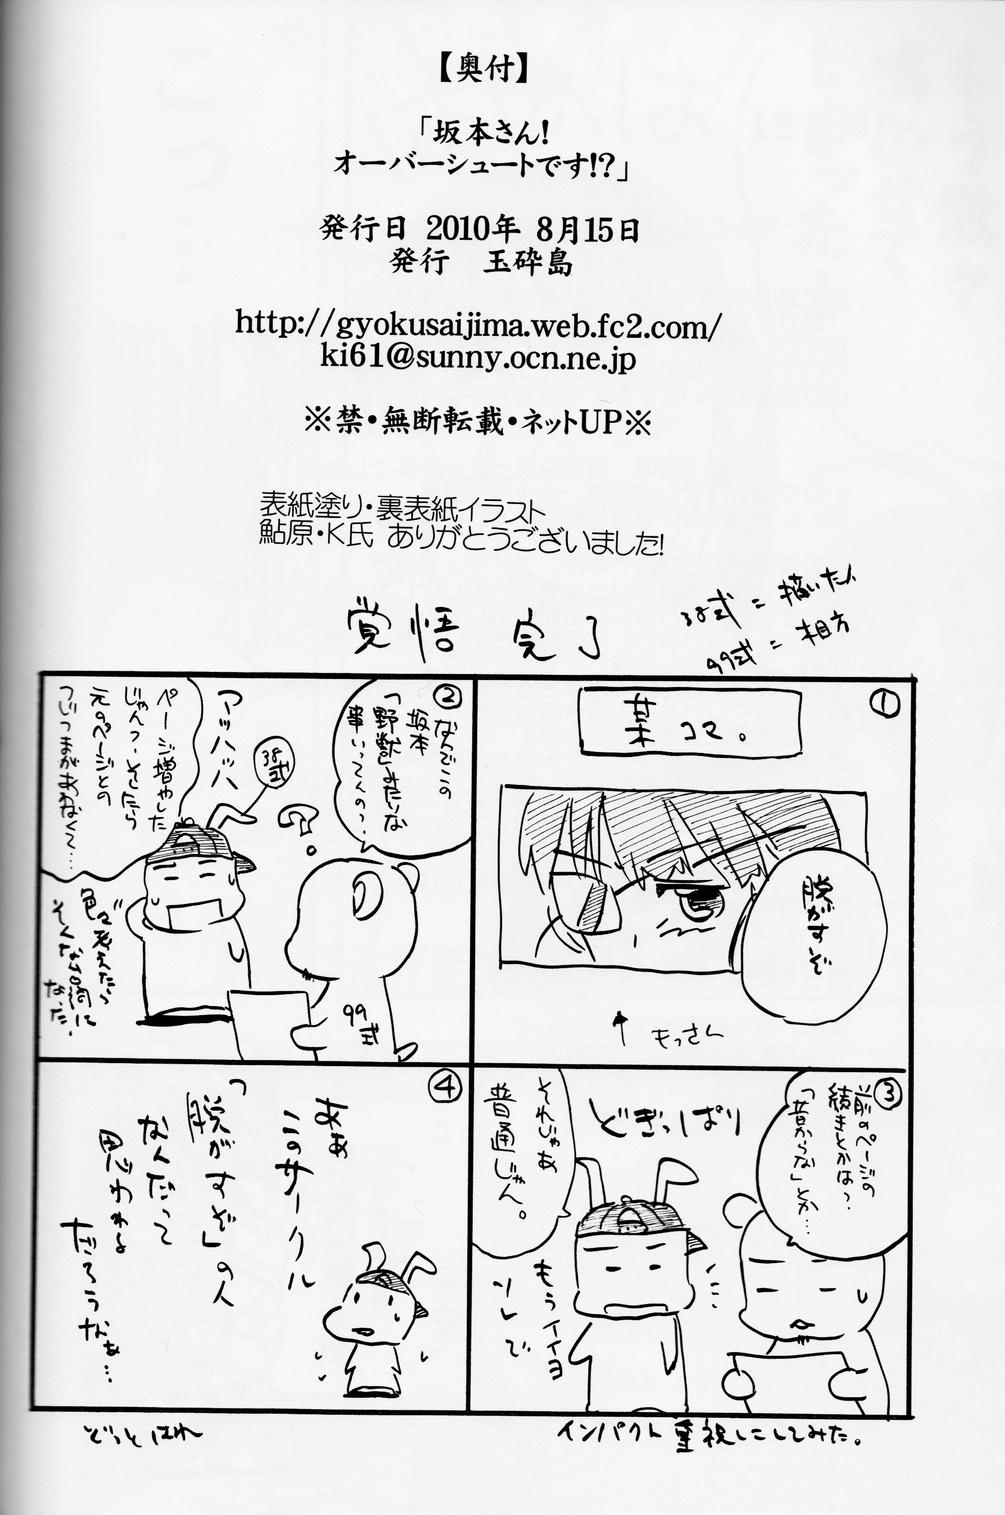 【奥付】
「坂本さん!
オーバーシュートです!?」
発行日 2010年 8月15日
発行 玉砕島
http://gyokusaijima.web.fc2.com/
ki61@sunny.ocn.ne.jp
※禁・無断転載・ネットUP※
表紙塗り・裏表紙イラスト
鮎原・K氏 ありがとうございました!
覚悟 完了
38式=描いた人
99式=相方
①
某コマ。
脱がすぞ
↑もっさん
②
なんでこの
坂本
「野獣」みたいな
事いってんの?
?
99式
38式
アッハッハ
ページ増やした
じゃんつーそしたら
元のページとの
つじつまがあわなくて…
色々考えたら
そんな台詞に
なった。
③
前のページの
続きとかは?
「昔からな」とか…
どぎっぱり
それじゃあ
普通じゃん。
もうイイヨ
ソレで
④
あぁ
このサークル
「脱がすぞ」の人
なんだって
思われる
だろうなぁ…
インパクト重視にしてみた。
どっとはれ